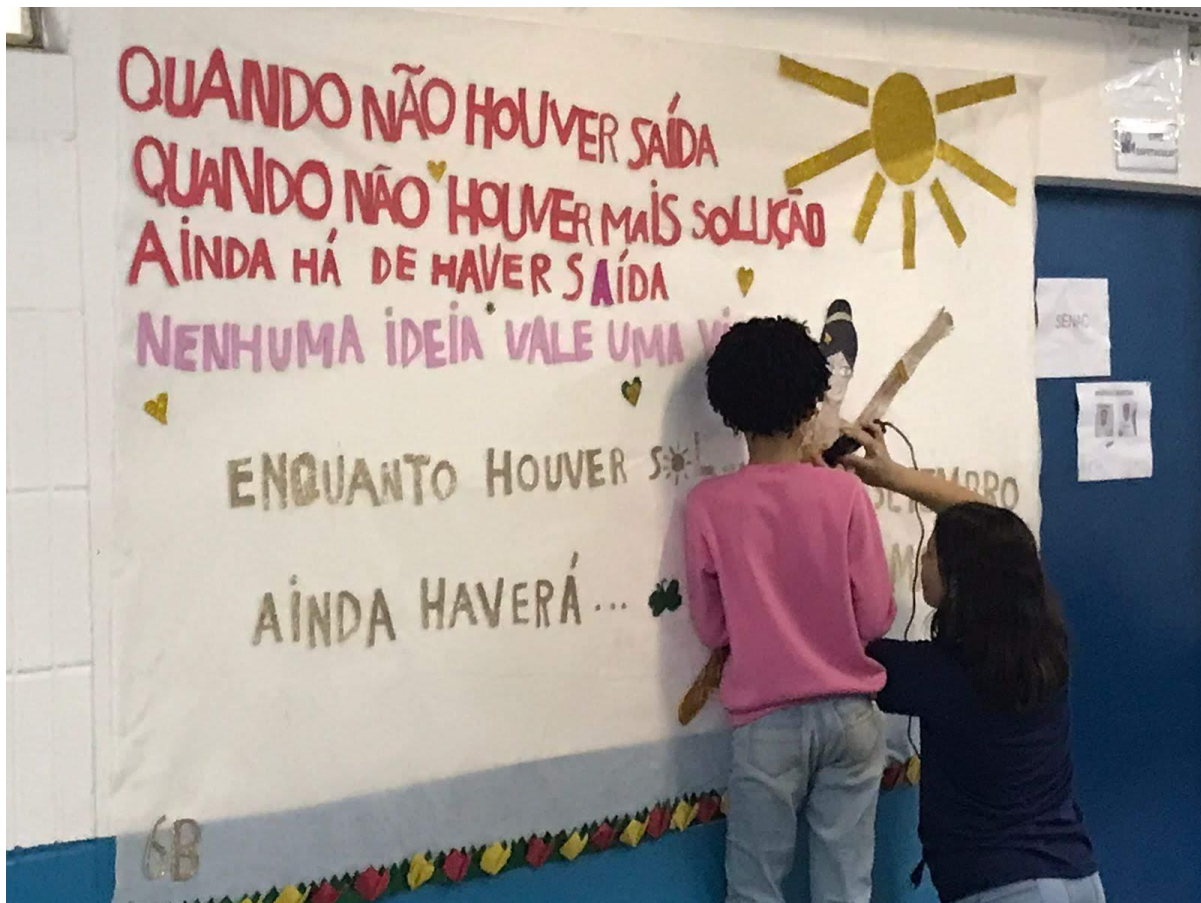 QUANDO NÃO HOUVER SAÍDA
QUANDO NÃO HOUVER MAIS SOLUÇÃO
AINDA HÁ DE HAVER SAÍDA
NENHUMA IDEIA VALE UMA
ENQUANTO HOUVER SOL
SETEMBRO
AINDA HAVERÁ...
6B
SENAC